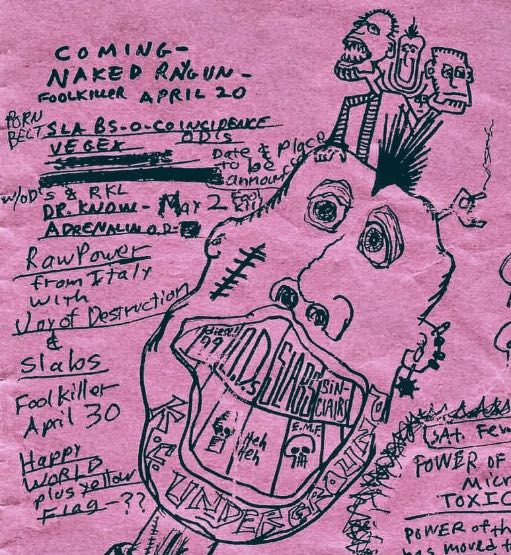 COMING-
NAKED RAYGUN-
FOOLKILLER APRIL 20
PORN
BELT
SLABS-O-COINCIDENCE
VEGEX OD'S
Date & Place
to be
announ
w/OD'S & RKL
DR. KNOW - May 2 Fool
Kil
ADRENALIN O.D.
Raw Power
from Italy
with
Joy of Destruction
&
Slabs
Foolkiller
April 30
Happy
WORLD
plus yellow
Flag - ??
SLABS
SIN-
CLAIR
E.M.F
Heh
Heh
K.C. UNDERGROUND
SAT. Few
POWER OF
Micr
TOXIC
POWER of th
moved t